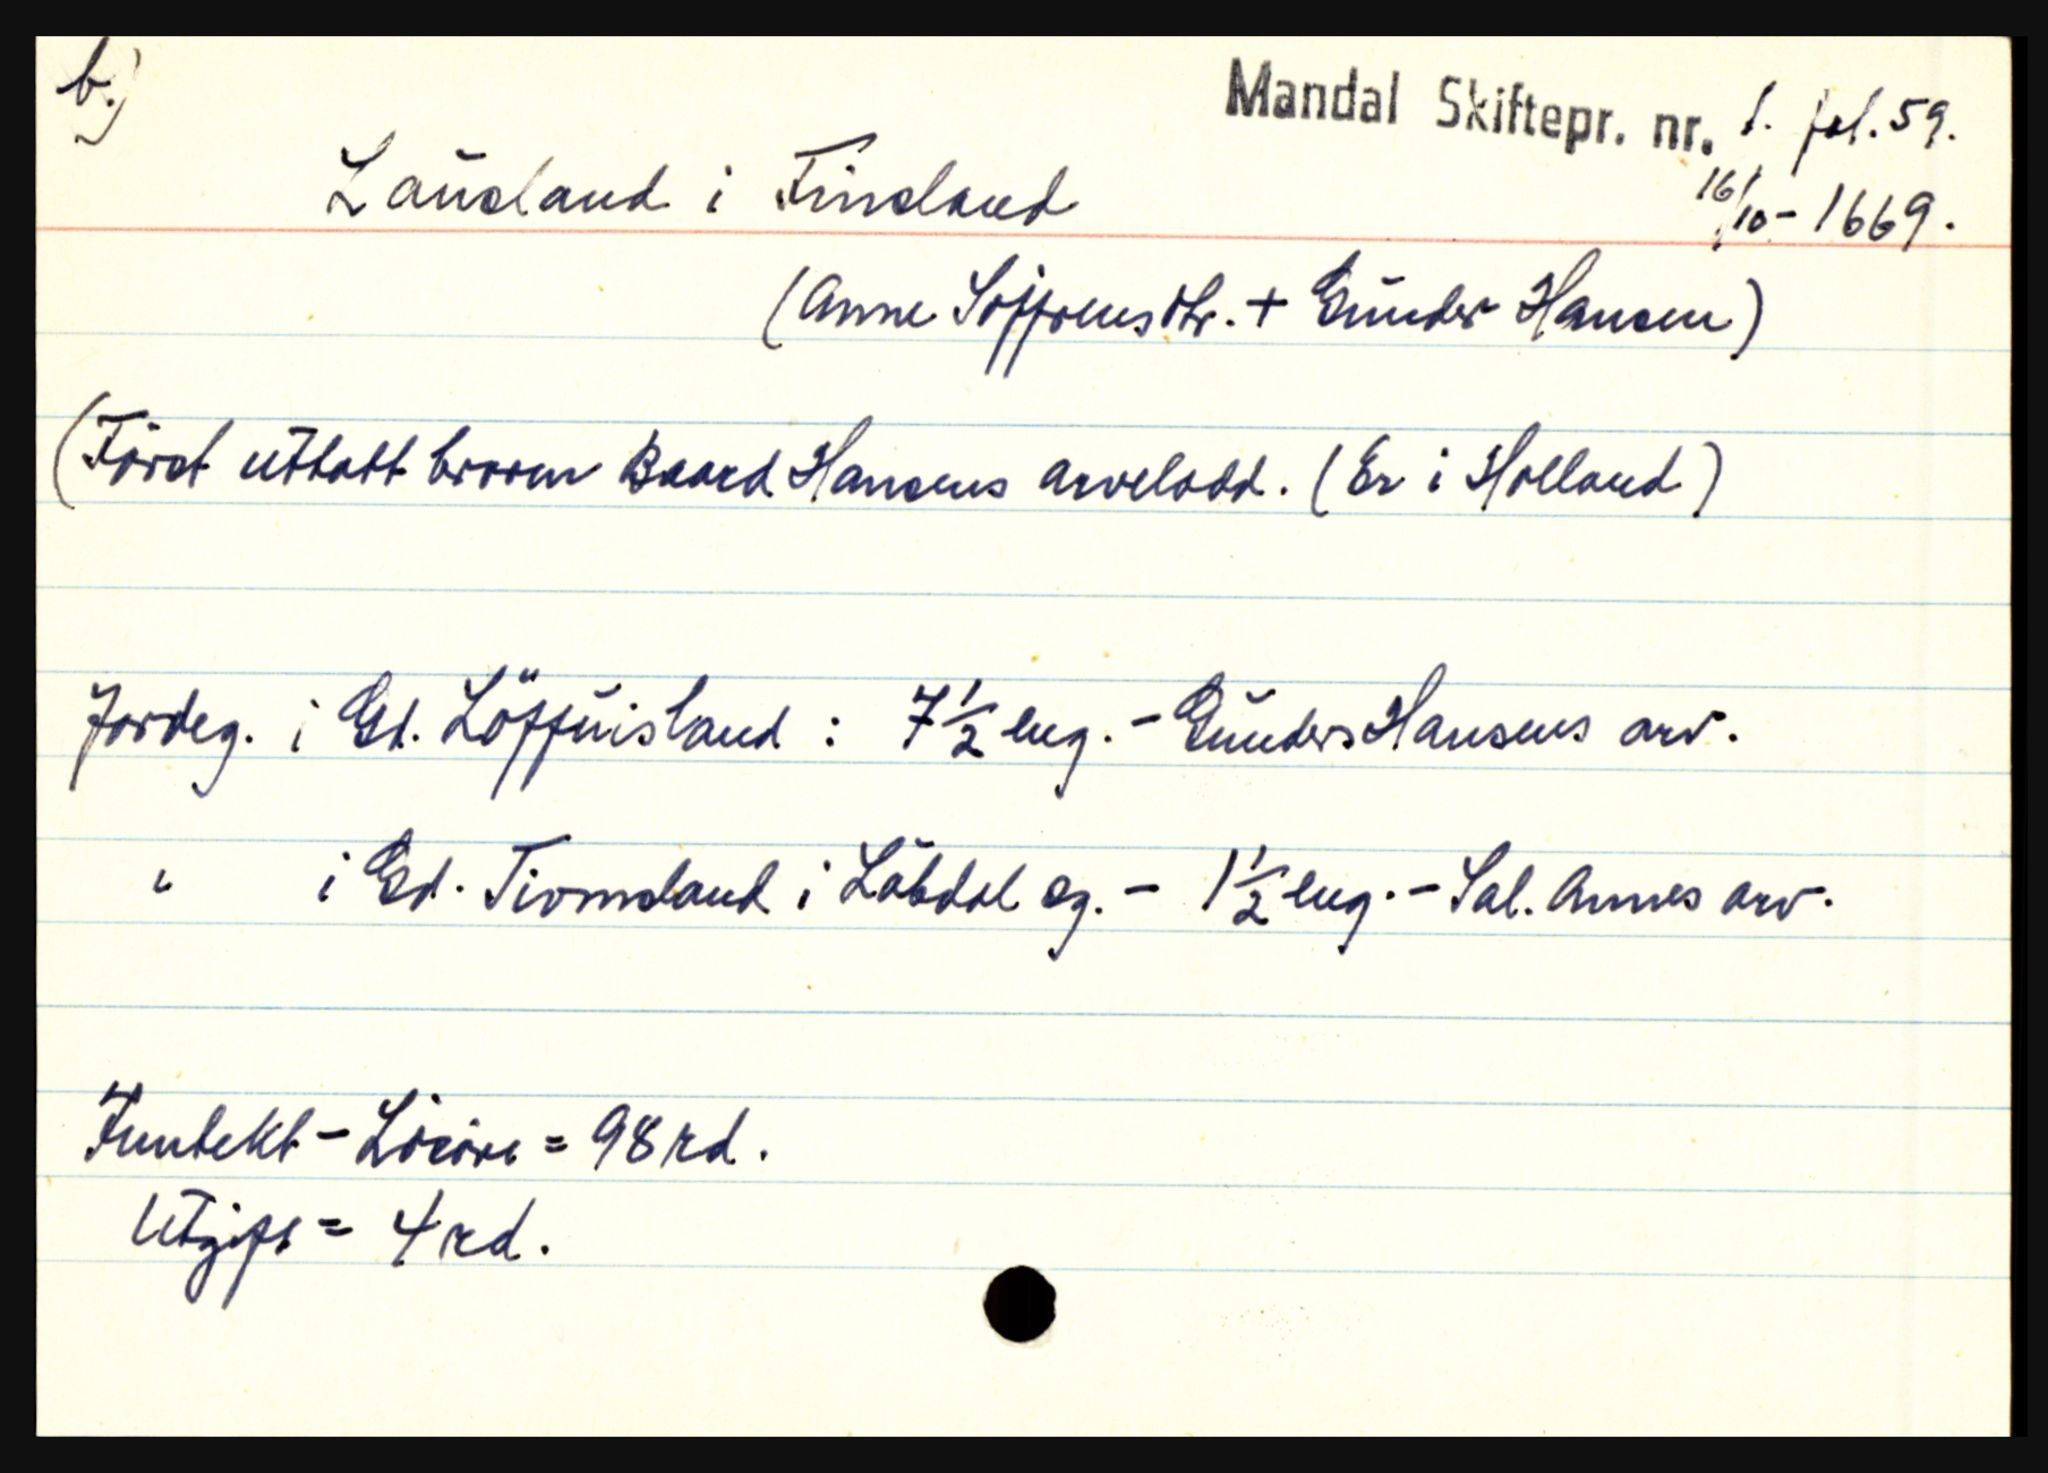 b.)
Mandal Skiftepr. nr. 1. fol. 59.
16/10 - 1669.
Lausland i Finsland
(Anne Soffrensdtr. + Gunder Hansen)
(Först uttatt broren Baard Hansens arvelodd. (Er i Holland)
Jordeg. i Gd. Löffuisland : 7 1/2 eng. - Gunders Hansens arv.
" i Gd. Tiomsland i Löbdal sg. - 1 1/2 eng. - Sal. Annes arv.
Inntekt - Lösöre = 98 rd.
Utgift = 4 rd.